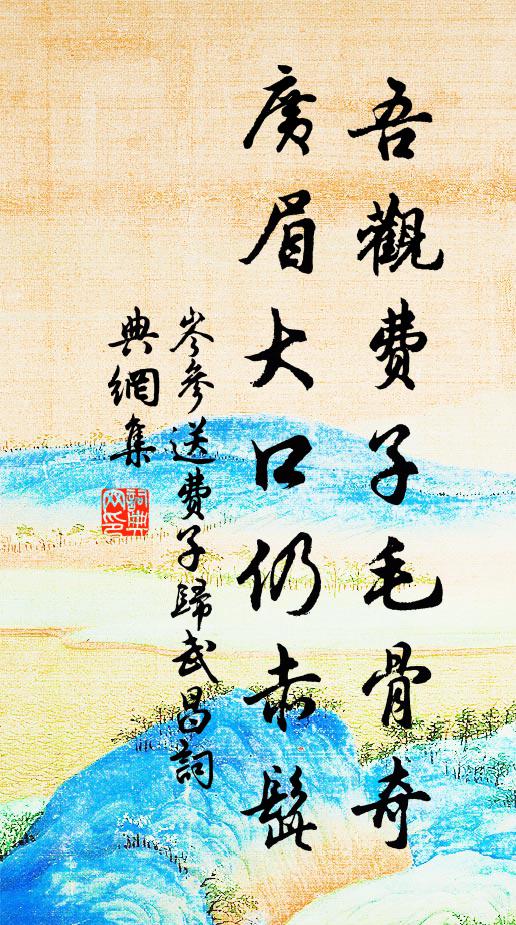 吾觀費子毛骨奇
廣眉大口仍赤髭
岑參送費子歸武昌詞
典網集